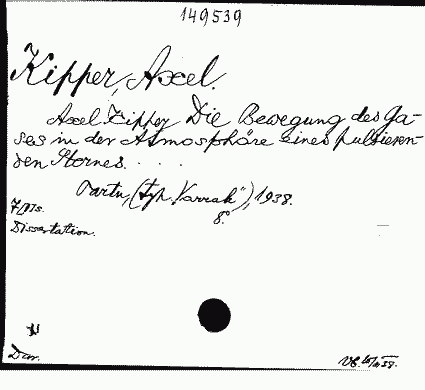 149539
Kipper, Axel.
Axel Kipper Die Bewegung des Ga-
ses in der Atmosphäre eines pulsieren-
den Sternes. . . .
Tartu, (Typ. "Varrak"), 1938.
8°
Dissertation.